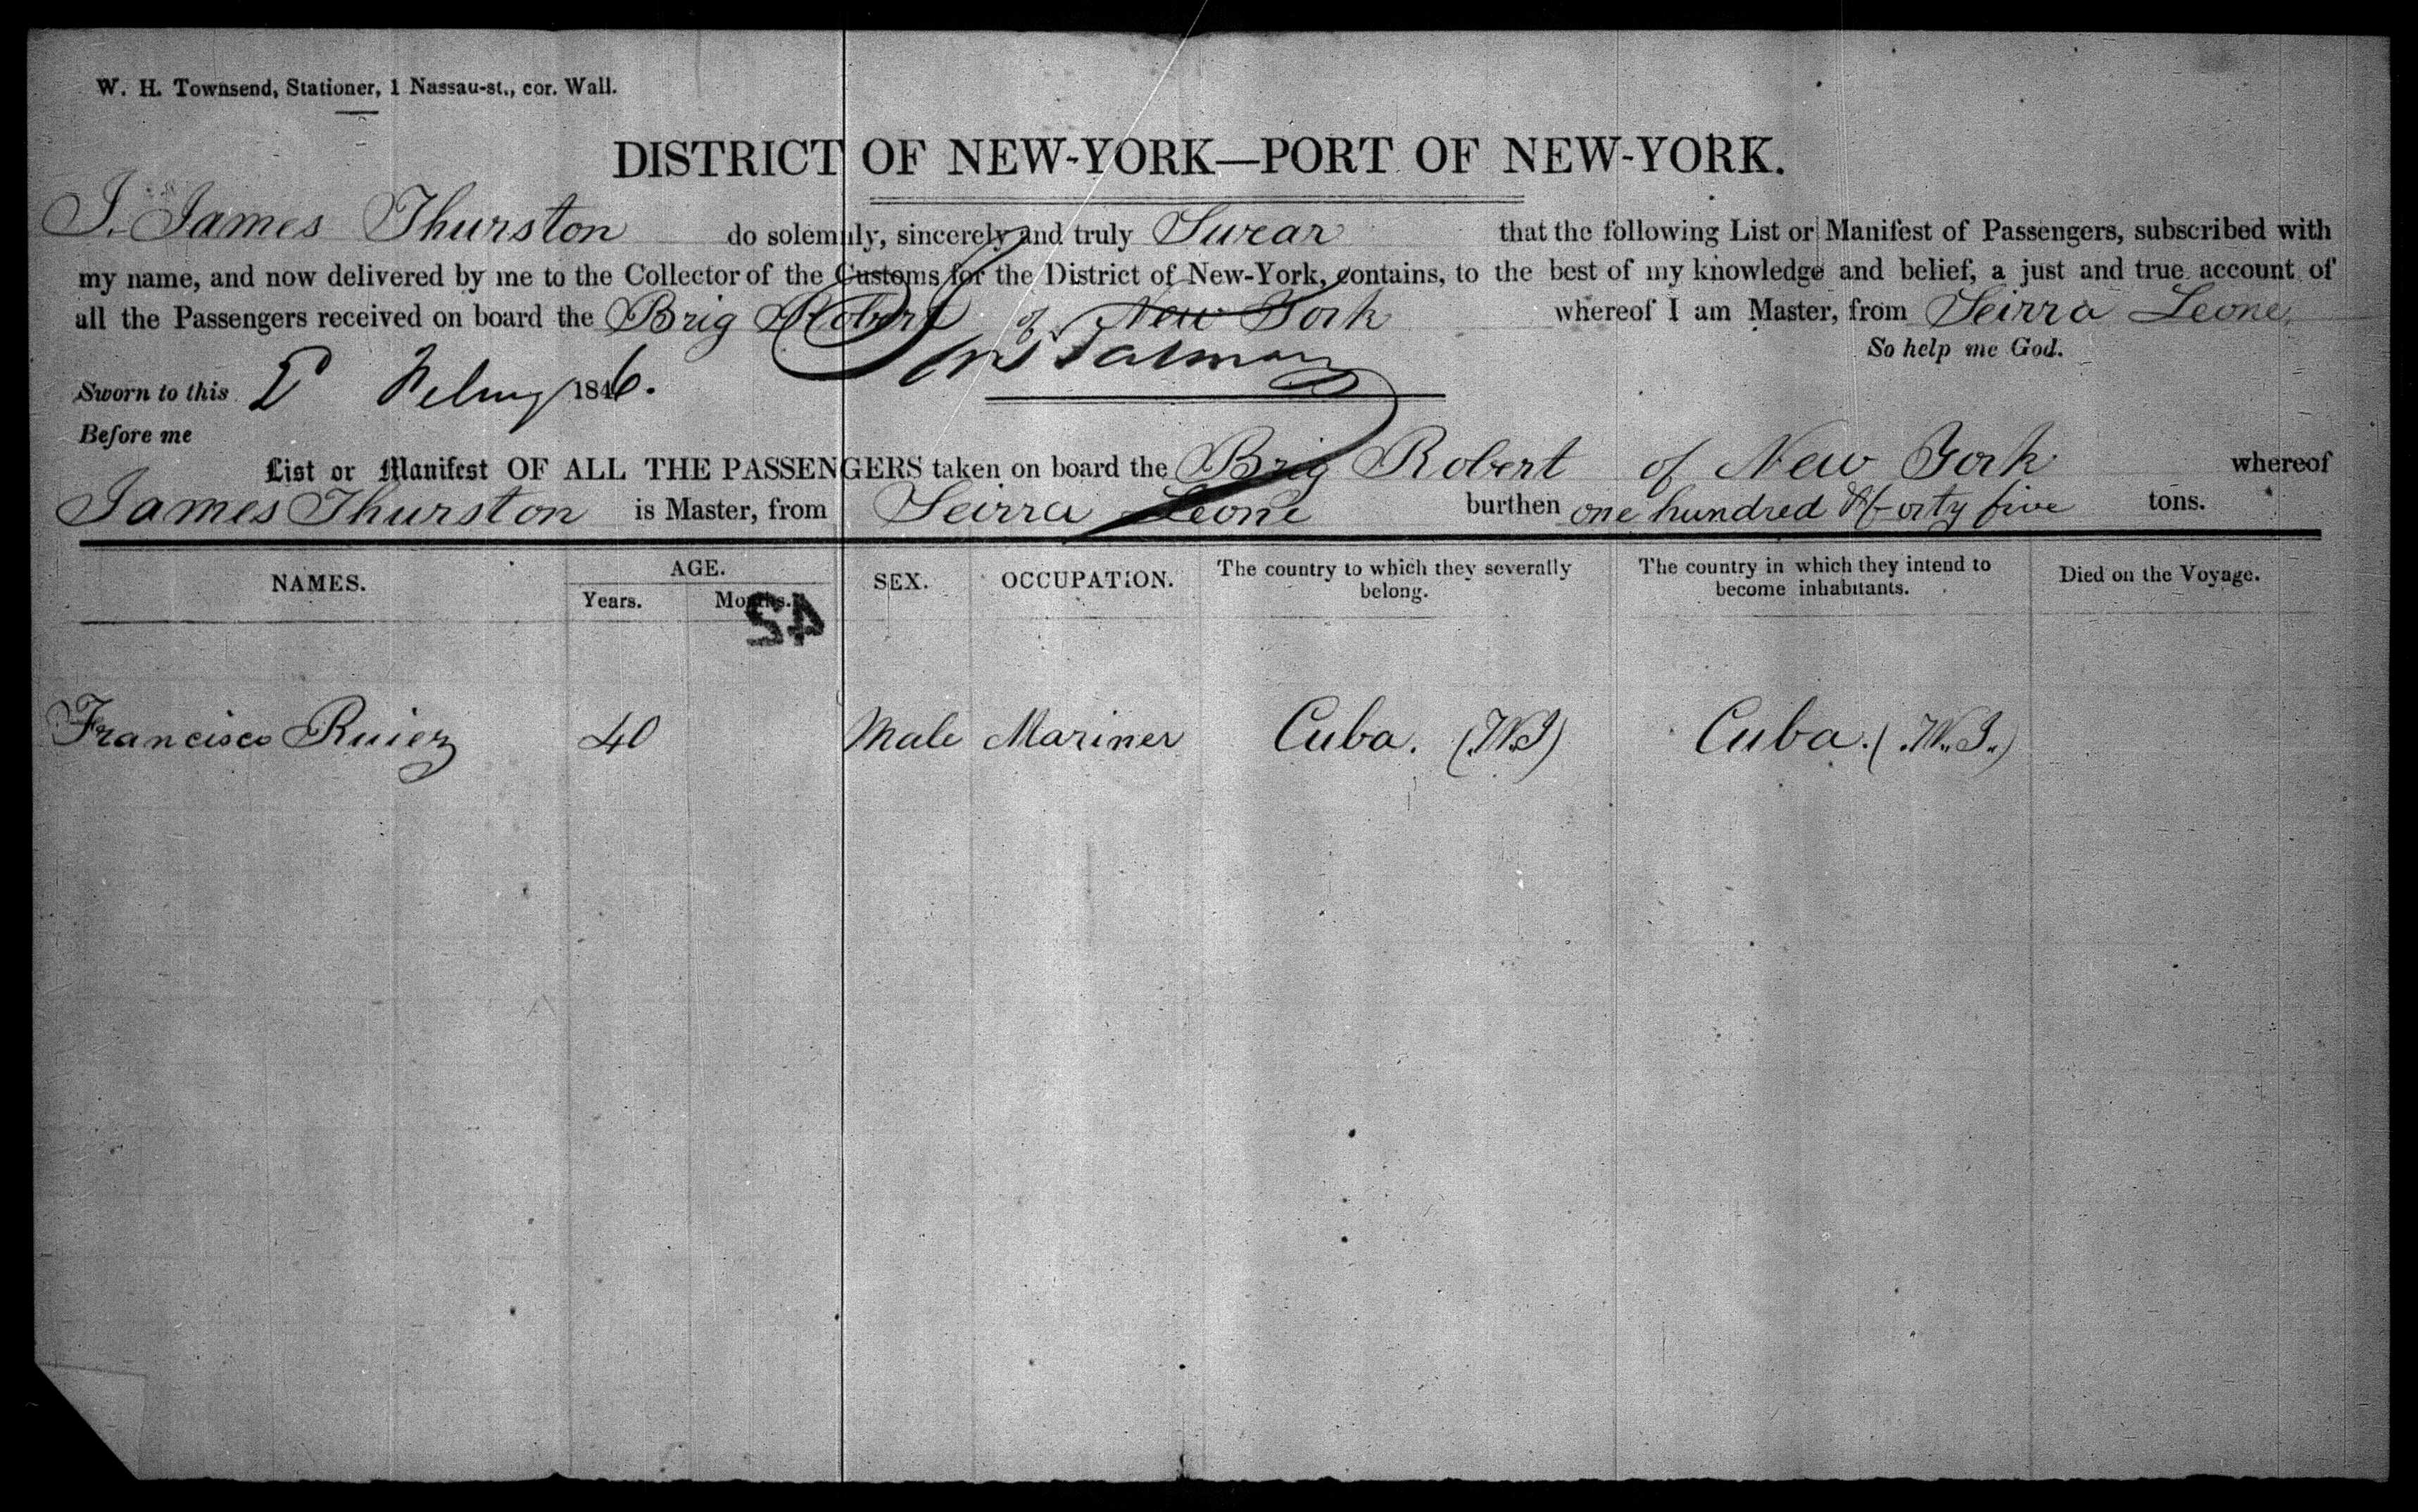 W. H. Townsend, Stationer, 1 Nassau-st., cor. Wall.
DISTRICT OF NEW-YORK—PORT OF NEW-YORK.
I. James Thurston do solemnly, sincerely and truly Swear that the following List or Manifest of Passengers, subscribed with
my name, and now delivered by me to the Collector of the Customs for the District of New-York, contains, to the best of my knowledge and belief, a just and true account of
all the Passengers received on board the Brig Robert of New York whereof I am Master, from Seirra Leone
So help me God.
Sworn to this 1846.
Before me
List or Manifest OF ALL THE PASSENGERS taken on board the Brig Robert of New York whereof
James Thurston is Master, from Seirra Leone burthen one hundred & forty five tons.
NAMES. AGE. SEX. OCCUPATION. The country to which they severally belong. The country in which they intend to become inhabitants. Died on the Voyage.
Years. Months.
42
Francisco Ruiez 40 Male Mariner Cuba. (W.I) Cuba. (.W..I..)